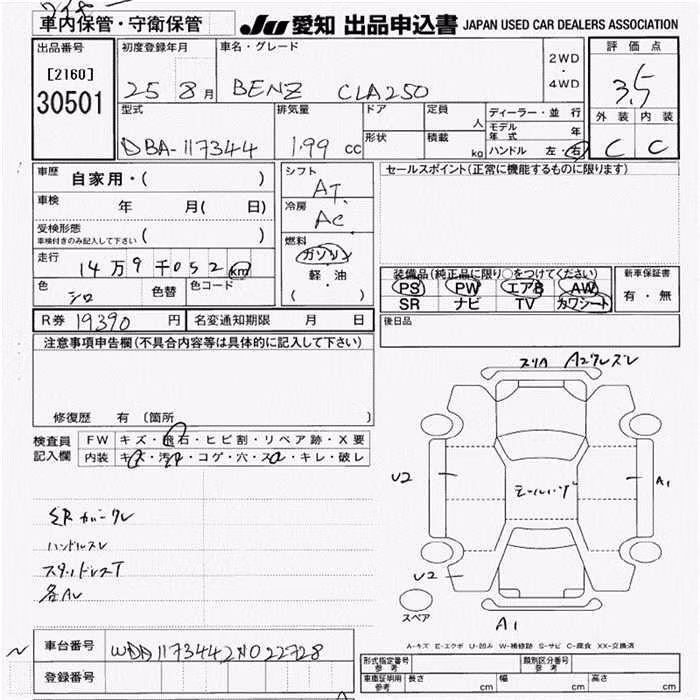 車内保管・守衛保管
JU 愛知 出品申込書 JAPAN USED CAR DEALERS ASSOCIATION
出品番号 初度登録年月 車名・グレード 評価点
[2160] 2WD・4WD
30501 25 8月 BENZ CLA250 3.5
型式 排気量 ドア 定員 人 ディーラー・並行 外装 内装
モデル年式 年
DBA-117344 1.99 cc 形状 積載 kg ハンドル 左・右 C C
車歴 自家用・( ) シフト AT セールスポイント(正常に機能するものに限ります)
車検 年 月( 日) 冷房 AC
受検形態 ( )
車検付きのみ記入して下さい
燃料 ガソリン
走行 14万9千052km 軽・油
( )
装備品(純正品に限り○をつけてください) 新車保証書
PS PW エアB AW 有・無
SR ナビ TV カワシート
色 シロ 色替 色コード
R券 19390 円 名変通知期限 月 日 後日品
注意事項申告欄(不具合内容等は具体的に記入して下さい)
修復歴 有 〔箇所 〕
検査員記入欄 FW キズ・飛石・ヒビ割・リペア跡・X要
内装 キズ・汚れ・コゲ・穴・スレ・キレ・破レ
ハンドルスレ
スタッドレスT
各AU
A2
U2
A1
U2
スペア
A1
A-キズ E-エクボ U-凹み W-補修跡 S-サビ C-腐食 XX-交換済
車台番号 WDD1173442N022728
登録番号
形式指定番号 参考 類別区分番号 参考
車庫証明用 参考 長さ cm 幅 cm 高さ cm